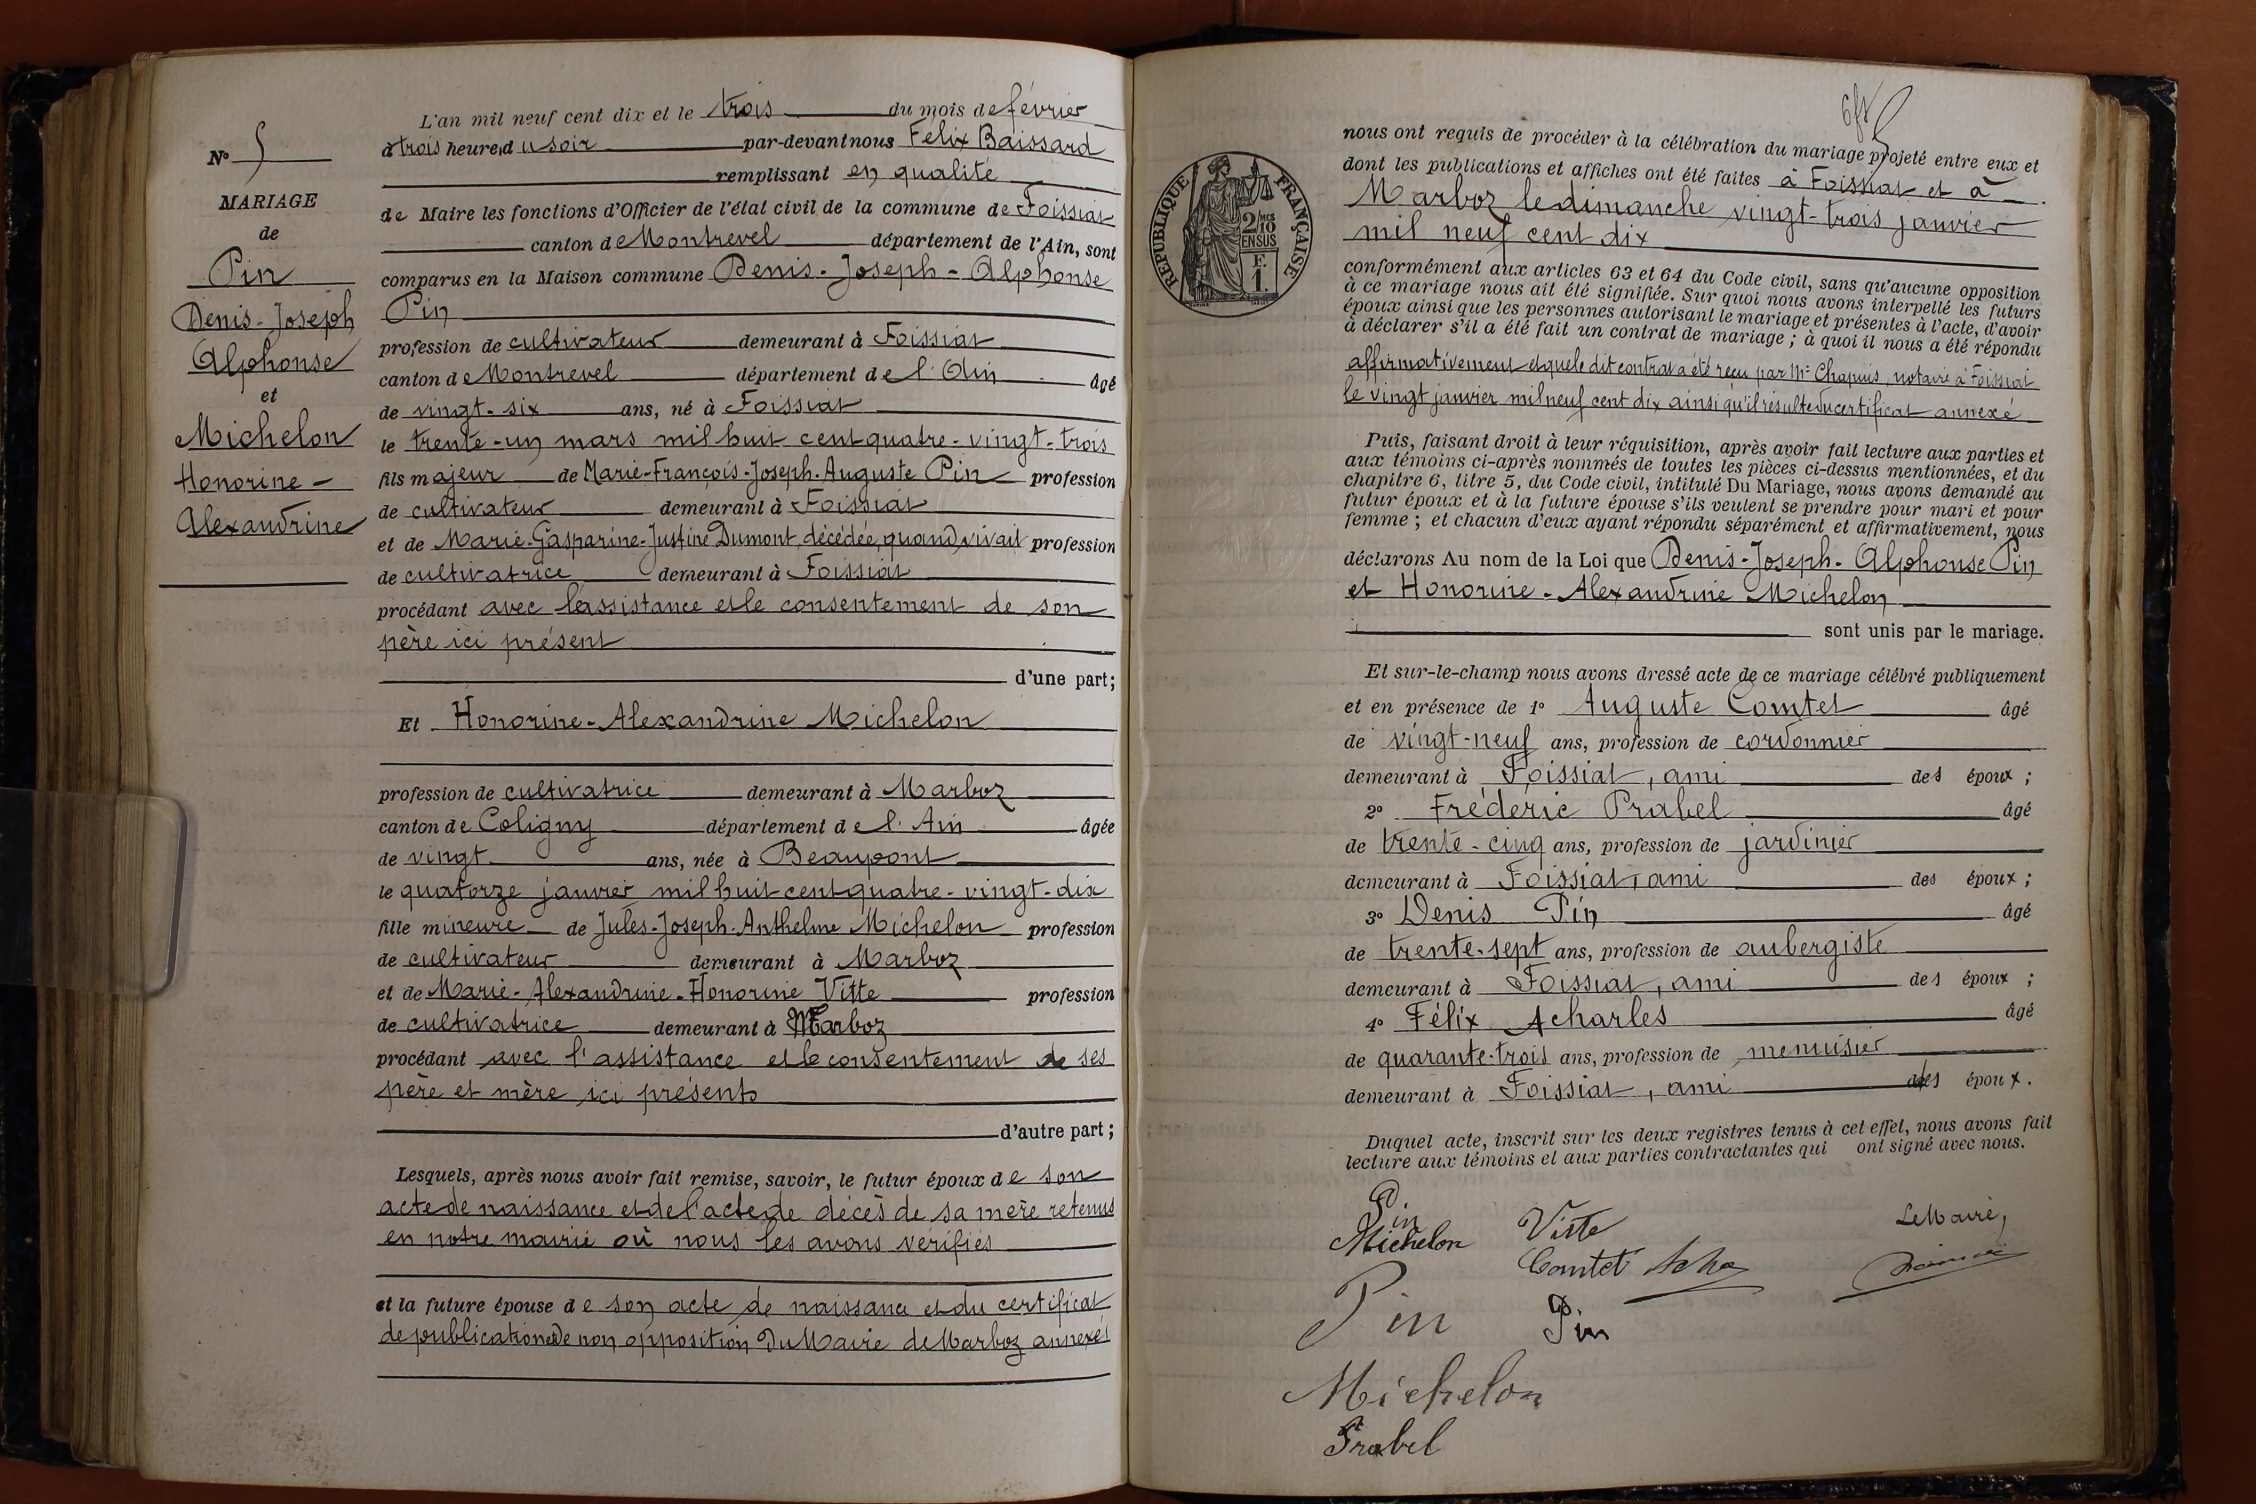 N° 5
MARIAGE
de
Pin
Denis-Joseph
Alphonse
et
Michelon
Honorine-
Alexandrine
L'an mil neuf cent dix et le trois du mois de février
à trois heure du soir par-devant nous Félix Baissard
remplissant en qualité
de Maire les fonctions d'Officier de l'état civil de la commune de Foissiat
canton de Montrevel département de l'Ain, sont
comparus en la Maison commune Denis-Joseph-Alphonse
Pin
profession de cultivateur demeurant à Foissiat
canton de Montrevel département de l'Ain âgé
de vingt-six ans, né à Foissiat
le trente-un mars mil huit cent quatre-vingt-trois
fils majeur de Marie-François-Joseph-Auguste Pin profession
de cultivateur demeurant à Foissiat
et de Marie-Gasparine-Justine Dumont, décédée, quand vivait profession
de cultivatrice demeurant à Foissiat
procédant avec l'assistance et le consentement de son
père ici présent
d'une part;
Et Honorine-Alexandrine Michelon
profession de cultivatrice demeurant à Marboz
canton de Coligny département de l'Ain âgée
de vingt ans, née à Beaupont
le quatorze janvier mil huit cent quatre-vingt-dix
fille mineure de Jules-Joseph-Anthelme Michelon profession
de cultivateur demeurant à Marboz
et de Marie-Alexandrine-Honorine Vitte profession
de cultivatrice demeurant à Marboz
procédant avec l'assistance et le consentement de ses
père et mère ici présents
d'autre part;
Lesquels, après nous avoir fait remise, savoir, le futur époux de son
acte de naissance et de l'acte de décès de sa mère retenus
en notre mairie où nous les avons vérifiés
et la future épouse de son acte de naissance et du certificat
de publication et de non opposition du Maire de Marboz annexés
RÉPUBLIQUE FRANÇAISE
2/10 MES
EN SUS
F.
1.
nous ont requis de procéder à la célébration du mariage projeté entre eux et
dont les publications et affiches ont été faites à Foissiat et à
Marboz le dimanche vingt-trois janvier
mil neuf cent dix
conformément aux articles 63 et 64 du Code civil, sans qu'aucune opposition
à ce mariage nous ait été signifiée. Sur quoi nous avons interpellé les futurs
époux ainsi que les personnes autorisant le mariage et présentes à l'acte, d'avoir
à déclarer s'il a été fait un contrat de mariage; à quoi il nous a été répondu
affirmativement et que le dit contrat a été reçu par Me Chapuis, notaire à Foissiat
le vingt janvier mil neuf cent dix ainsi qu'il résulte du certificat annexé
Puis, faisant droit à leur réquisition, après avoir fait lecture aux parties et
aux témoins ci-après nommés de toutes les pièces ci-dessus mentionnées, et du
chapitre 6, titre 5, du Code civil, intitulé Du Mariage, nous avons demandé au
futur époux et à la future épouse s'ils veulent se prendre pour mari et pour
femme; et chacun d'eux ayant répondu séparément et affirmativement, nous
déclarons Au nom de la Loi que Denis-Joseph-Alphonse Pin
et Honorine-Alexandrine Michelon
sont unis par le mariage.
Et sur-le-champ nous avons dressé acte de ce mariage célébré publiquement
et en présence de 1° Auguste Comtet âgé
de vingt-neuf ans, profession de cordonnier
demeurant à Foissiat, ami des époux;
2° Frédéric Prabel âgé
de trente-cinq ans, profession de jardinier
demeurant à Foissiat, ami des époux;
3° Denis Pin âgé
de trente-sept ans, profession de aubergiste
demeurant à Foissiat, ami des époux;
4° Félix Acharles âgé
de quarante-trois ans, profession de menuisier
demeurant à Foissiat, ami des époux.
Duquel acte, inscrit sur les deux registres tenus à cet effet, nous avons fait
lecture aux témoins et aux parties contractantes qui ont signé avec nous.
Pin
Michelon Vitte Le Maire,
Comtet
Pin Pin
Michelon
Prabel